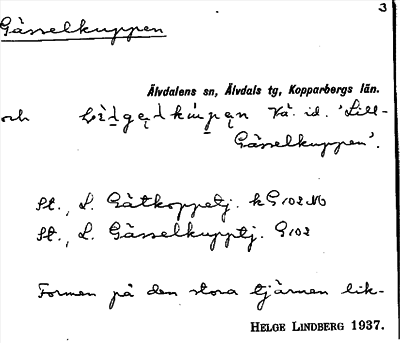 3
Gåsselkuppen
Älvdalens sn, Älvdals tg, Kopparbergs län.
och Vä. id. 'Lill-
Gåsselkuppen'.
St., L. Gåtkoppetj. k G 102 NO
St., L. Gåsselkupptj. G 102
Formen på den stora tjärnen lik-
HELGE LINDBERG 1937.